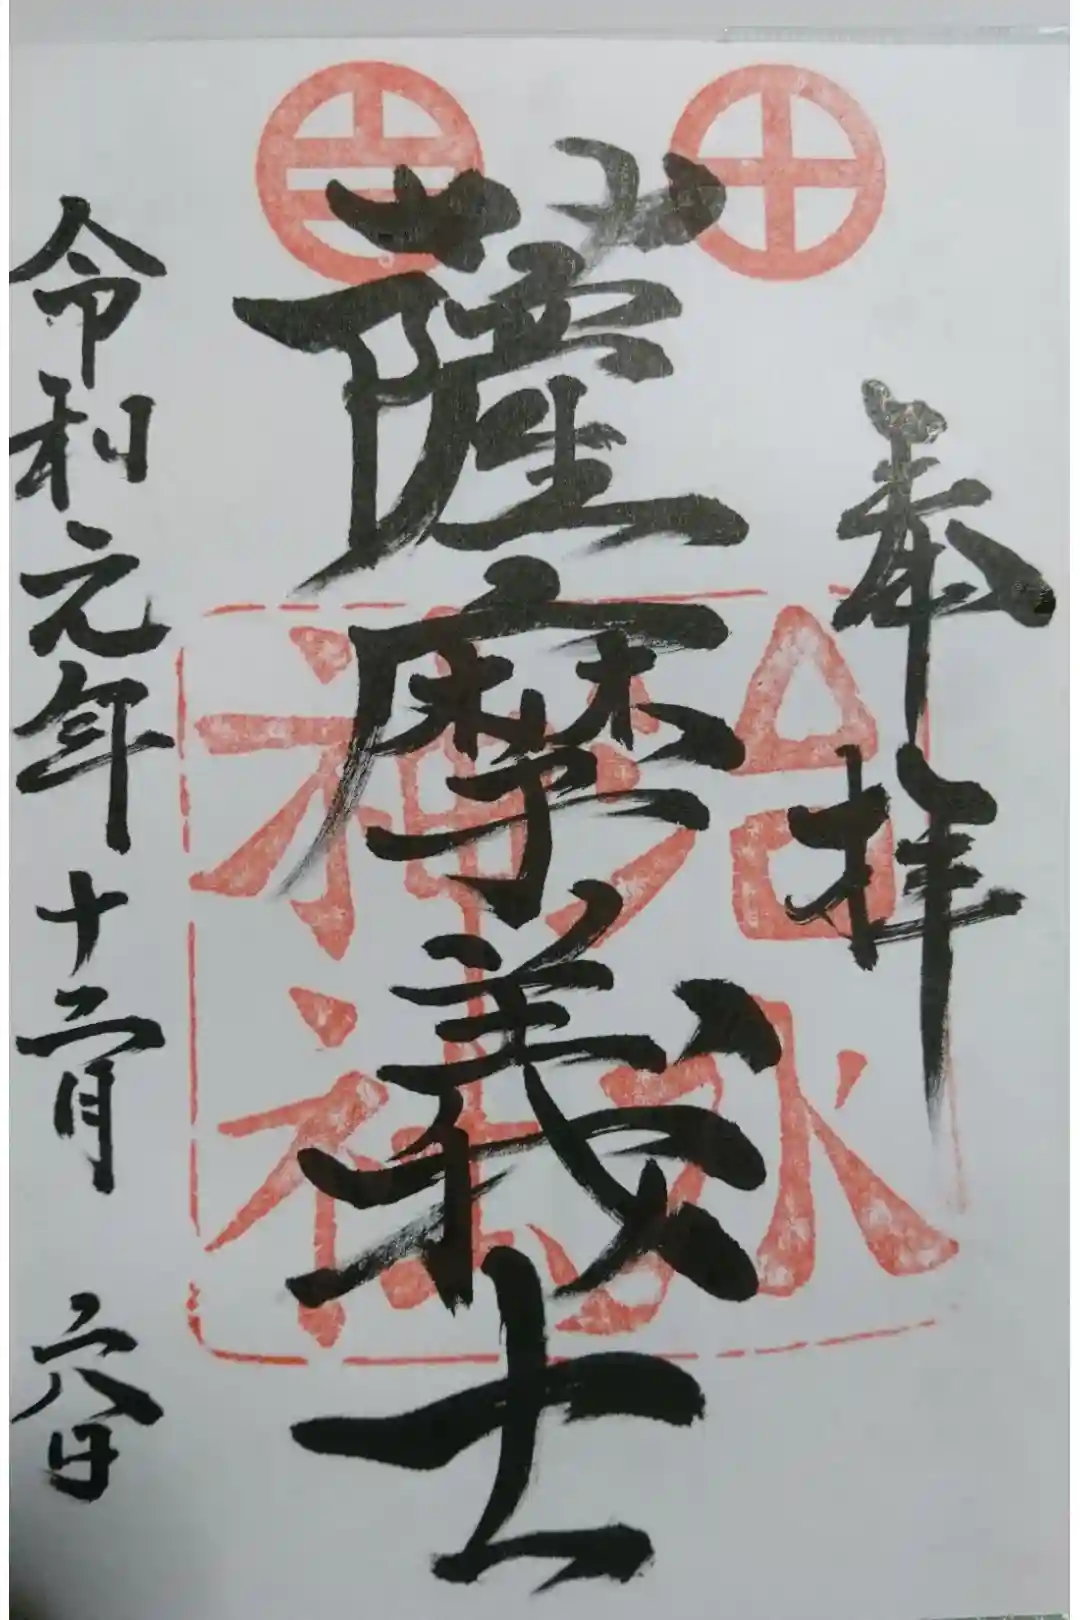 奉拝
薩摩義士
令和元年十二月二八日
治水
神社